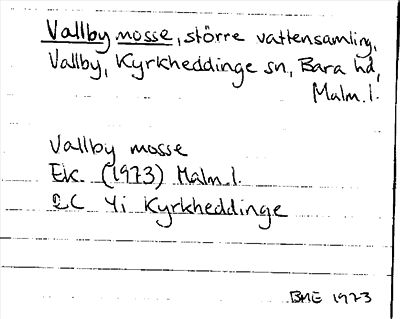 Vallby mosse, större vattensamling,
Vallby, Kyrkheddinge sn, Bara hd,
Malm.l.
Vallby mosse
Ek. (1973) Malm.l.
2C 4i Kyrkheddinge
BME 1973